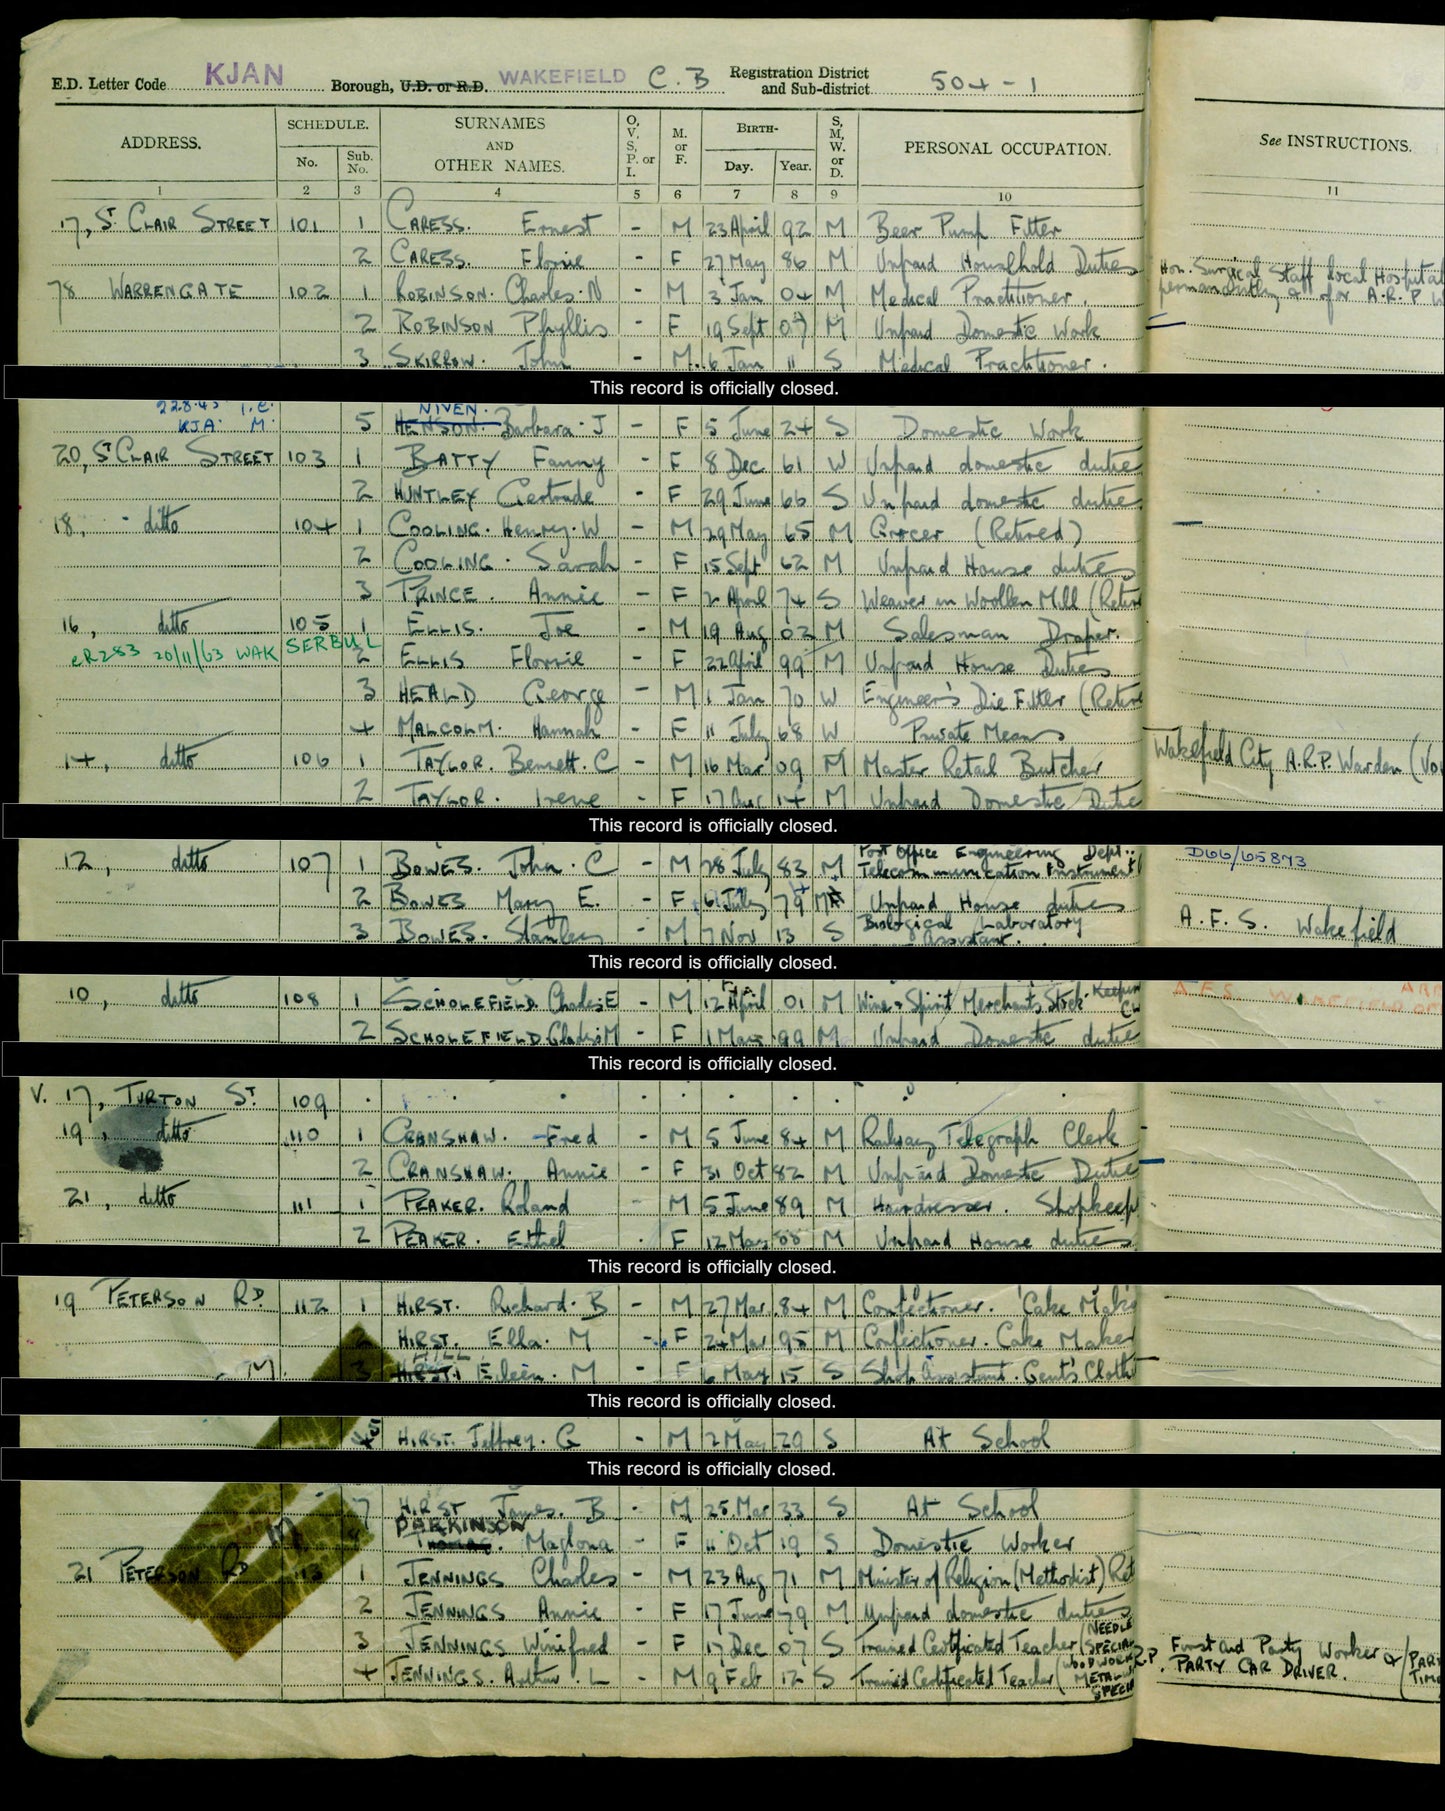 E.D. Letter Code KJAN Borough, U.D. or R.D. WAKEFIELD C.B Registration District and Sub-district 504-1
ADDRESS. SCHEDULE. No. Sub. No. SURNAMES AND OTHER NAMES. O, V, S, P. or I. M. or F. BIRTH- Day. Year. S, M, W. or D. PERSONAL OCCUPATION. See INSTRUCTIONS.
1 2 3 4 5 6 7 8 9 10 11
17, St. CLAIR STREET 101 1 CARESS. Ernest - M 23 April 92 M Beer Pump Fitter
2 CARESS. Florrie - F 27 May 86 M Unpaid Household Duties
Hon. Surgical Staff local Hospital
78 WARRENGATE 102 1 ROBINSON. Charles. N - M 3 Jan 04 M Medical Practitioner. for A.R.P.
2 ROBINSON Phyllis - F 19 Sept 07 M Unpaid Domestic Work
3 SKIRROW. John - M 6 Jan 11 S Medical Practitioner.
This record is officially closed.
22.8.45 NIVEN.
KJA M. 5 HENSON. Barbara. J - F 5 June 24 S Domestic Work
20, St CLAIR STREET 103 1 BATTY Fanny - F 8 Dec 61 W Unpaid domestic dutie
2 HUNTLEY Gertrude - F 29 June 66 S Unpaid domestic dutie
18, ditto 104 1 COOLING. Henry. W - M 29 May 65 M Grocer (Retired)
2 COOLING. Sarah - F 15 Sept 62 M Unpaid House duties
3 PRINCE. Annie - F 2 April 74 S Weaver in Woollen Mill (Retire
16, ditto 105 1 ELLIS. Joe - M 19 Aug 02 M Salesman Draper.
CR283 20/11/63 WAK SERBUL 2 ELLIS Florrie - F 22 April 99 M Unpaid House Duties
3 HEALD George - M 1 Jan 70 W Engineer's Die Fitter (Retire
4 MALCOLM. Hannah - F 11 July 68 W Private Means
14, ditto 106 1 TAYLOR. Bennett. C - M 16 Mar 09 M Master Retail Butcher Wakefield City A.R.P. Warden (Vo
2 TAYLOR. Irene - F 17 14 M Unpaid Domestic Dutie
This record is officially closed.
12, ditto 107 1 BOWES. John. C - M 28 July 83 M Post Office Engineering Dept. Telecommunication Instrument D66/65873
2 BOWES Mary E. - F 6 July 79 M Unpaid House duties
3 BOWES. Stanley - M 7 Nov 13 S Biological Laboratory Assistant. A.F.S. Wakefield
This record is officially closed.
10, ditto 108 1 SCHOLEFIELD. Charles E - M 12 April 01 M Wine & Spirit Merchants Stock Keeper A.F.S. WAKEFIELD
2 SCHOLEFIELD. Gladys M - F 1 99 M Unpaid Domestic dutie
This record is officially closed.
V. 17, TURTON ST. 109
19, ditto 110 1 CRANSHAW. Fred - M 5 June 84 M Railway Telegraph Clerk
2 CRANSHAW. Annie - F 31 Oct 82 M Unpaid Domestic Dutie
21, ditto 111 1 PEAKER. Roland - M 5 June 89 M Hairdresser. Shopkeep
2 PEAKER. Ethel F 12 May 88 M Unpaid House duties
This record is officially closed.
19 PETERSON RD. 112 1 HIRST. Richard. B - M 27 Mar 84 M Confectioner. Cake Make
HIRST. Ella. M - F 24 Mar 95 M Confectioner. Cake Maker
HILL
M. 3 HIRST. Eileen. M - F 6 May 15 S Shop Assistant. Gent's Cloth
This record is officially closed.
5 HIRST. Jeffrey. G - M 2 May 29 S At School
This record is officially closed.
7 HIRST James. B - M 25 Mar 33 S At School
PARKINSON
THOMAS. Maglona - F 11 Oct 19 S Domestic Worker
21 PETERSON RD 113 1 JENNINGS Charles - M 23 Aug 71 M Minister of Religion (Methodist) Ret
2 JENNINGS Annie - F 17 June 79 M Unpaid domestic duties
3 JENNINGS Winifred - F 17 Dec 07 S Trained Certificated Teacher (NEEDLE SPECIAL First Aid Party Worker & (PAR
4 JENNINGS. Arthur. L - M 9 Feb 12 S Trained Certificated Teacher (WOODWORK METALW SPECIA R.P. PARTY CAR DRIVER. TIME